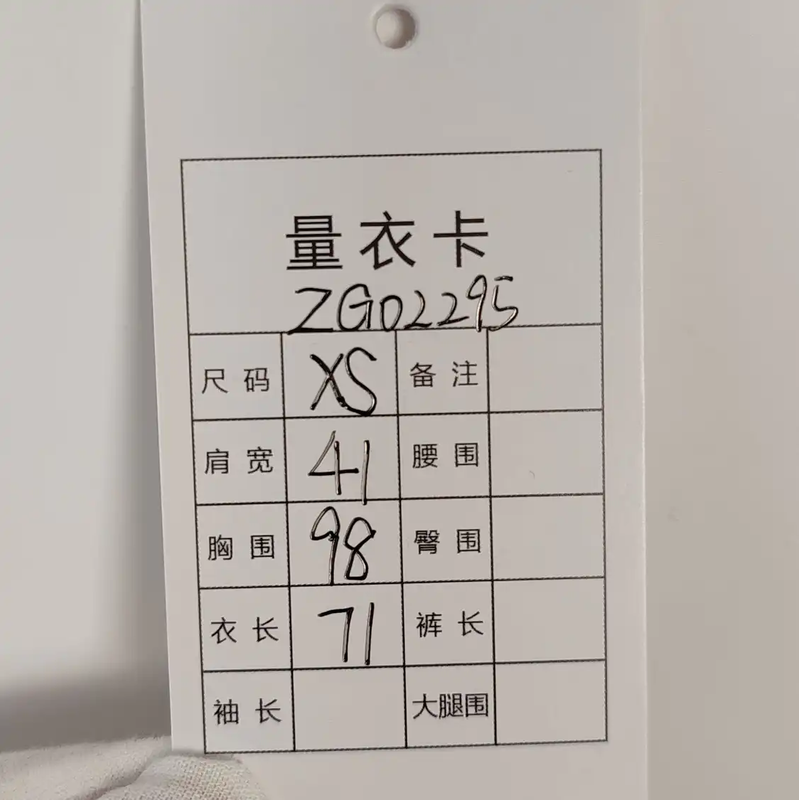 量衣卡
ZG02295
尺码 XS 备注
肩宽 41 腰围
胸围 98 臀围
衣长 71 裤长
袖长 大腿围